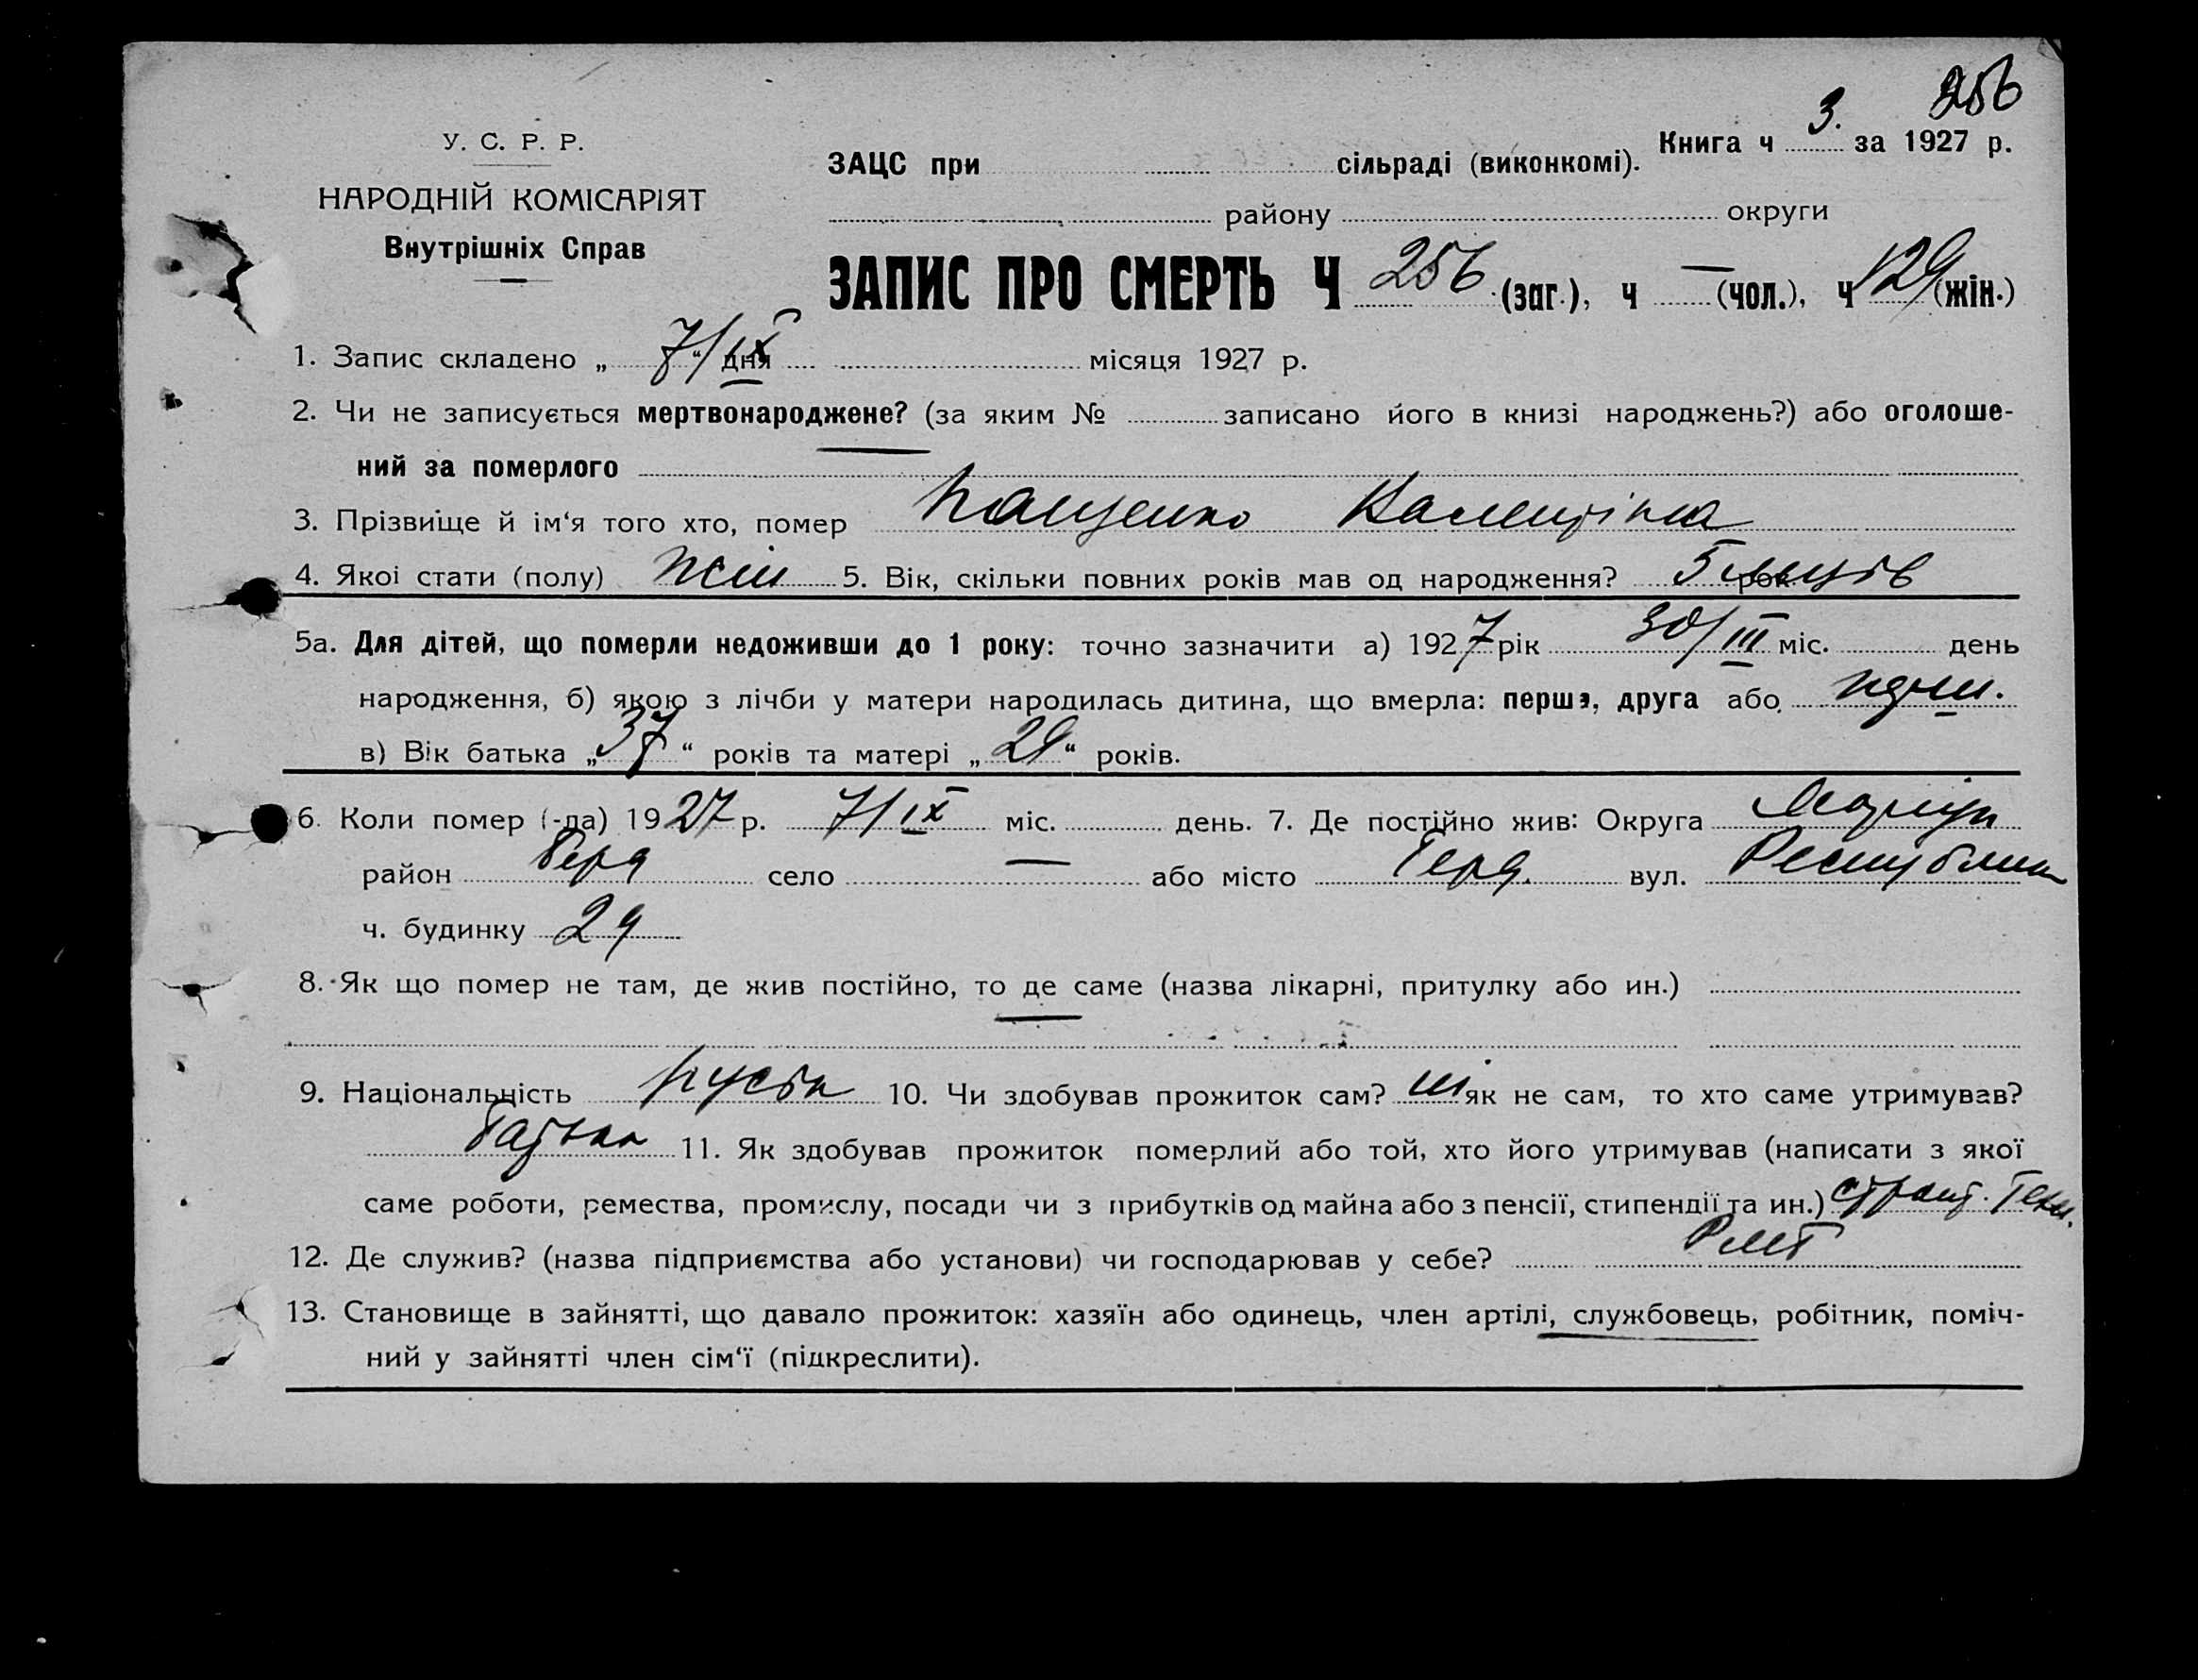 256
У. С. Р. Р.
НАРОДНІЙ КОМІСАРІЯТ
Внутрішніх Справ
Книга ч 3. за 1927 р.
ЗАЦС при сільраді (виконкомі).
району округи
ЗАПИС ПРО СМЕРТЬ Ч 256 (заг.), ч — (чол.), ч 129 (жін.)
1. Запис складено „ 7/IX “ дня місяця 1927 р.
2. Чи не записується мертвонароджене? (за яким № записано його в книзі народжень?) або оголоше-
ний за померлого —
3. Прізвище й ім‘я того хто, помер Пащенко Валентіна
4. Якої стати (полу) жін 5. Вік, скільки повних років мав од народження? 5 рок.
5а. Для дітей, що померли недоживши до 1 року: точно зазначити а) 1927 рік 30/III міс. день
народження, б) якою з лічби у матери народилась дитина, що вмерла: перша, друга або
в) Вік батька „ 37 “ років та матері „ 29 “ років.
6. Коли помер (-ла) 1927 р. 7/IX міс. день. 7. Де постійно жив: Округа Маріуп
район Берд село — або місто Берд. вул. Республик
ч. будинку 29
8. Як що помер не там, де жив постійно, то де саме (назва лікарні, притулку або ин.)
9. Національність руськ 10. Чи здобував прожиток сам? ні як не сам, то хто саме утримував?
батько 11. Як здобував прожиток померлий або той, хто його утримував (написати з якої
саме роботи, ремества, промислу, посади чи з прибутків од майна або з пенсії, стипендії та ин.)
12. Де служив? (назва підприємства або установи) чи господарював у себе?
13. Становище в зайнятті, що давало прожиток: хазяїн або одинець, член артілі, службовець, робітник, поміч-
ний у зайнятті член сім‘ї (підкреслити).